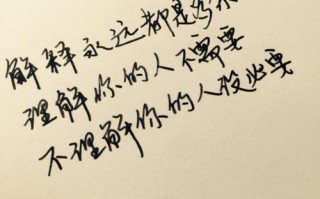 解释永远都是多余
理解你的人不需要
不理解你的人没必要